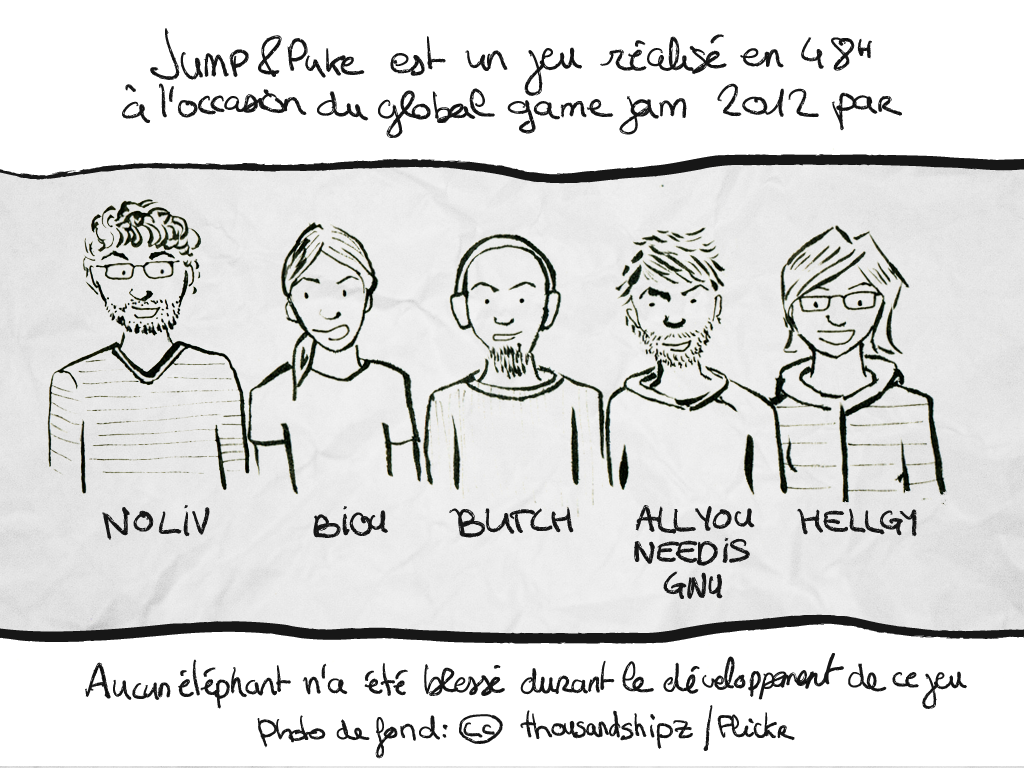 Jump&Puke est un jeu réalisé en 48H
à l'occasion du global game jam 2012 par
NOLIV
BIOU
BUTCH
ALLYOU
NEEDIS
GNU
HELLGY
Aucun éléphant n'a été blessé durant le développement de ce jeu
Photo de fond: cc thousandshipz / Flickr